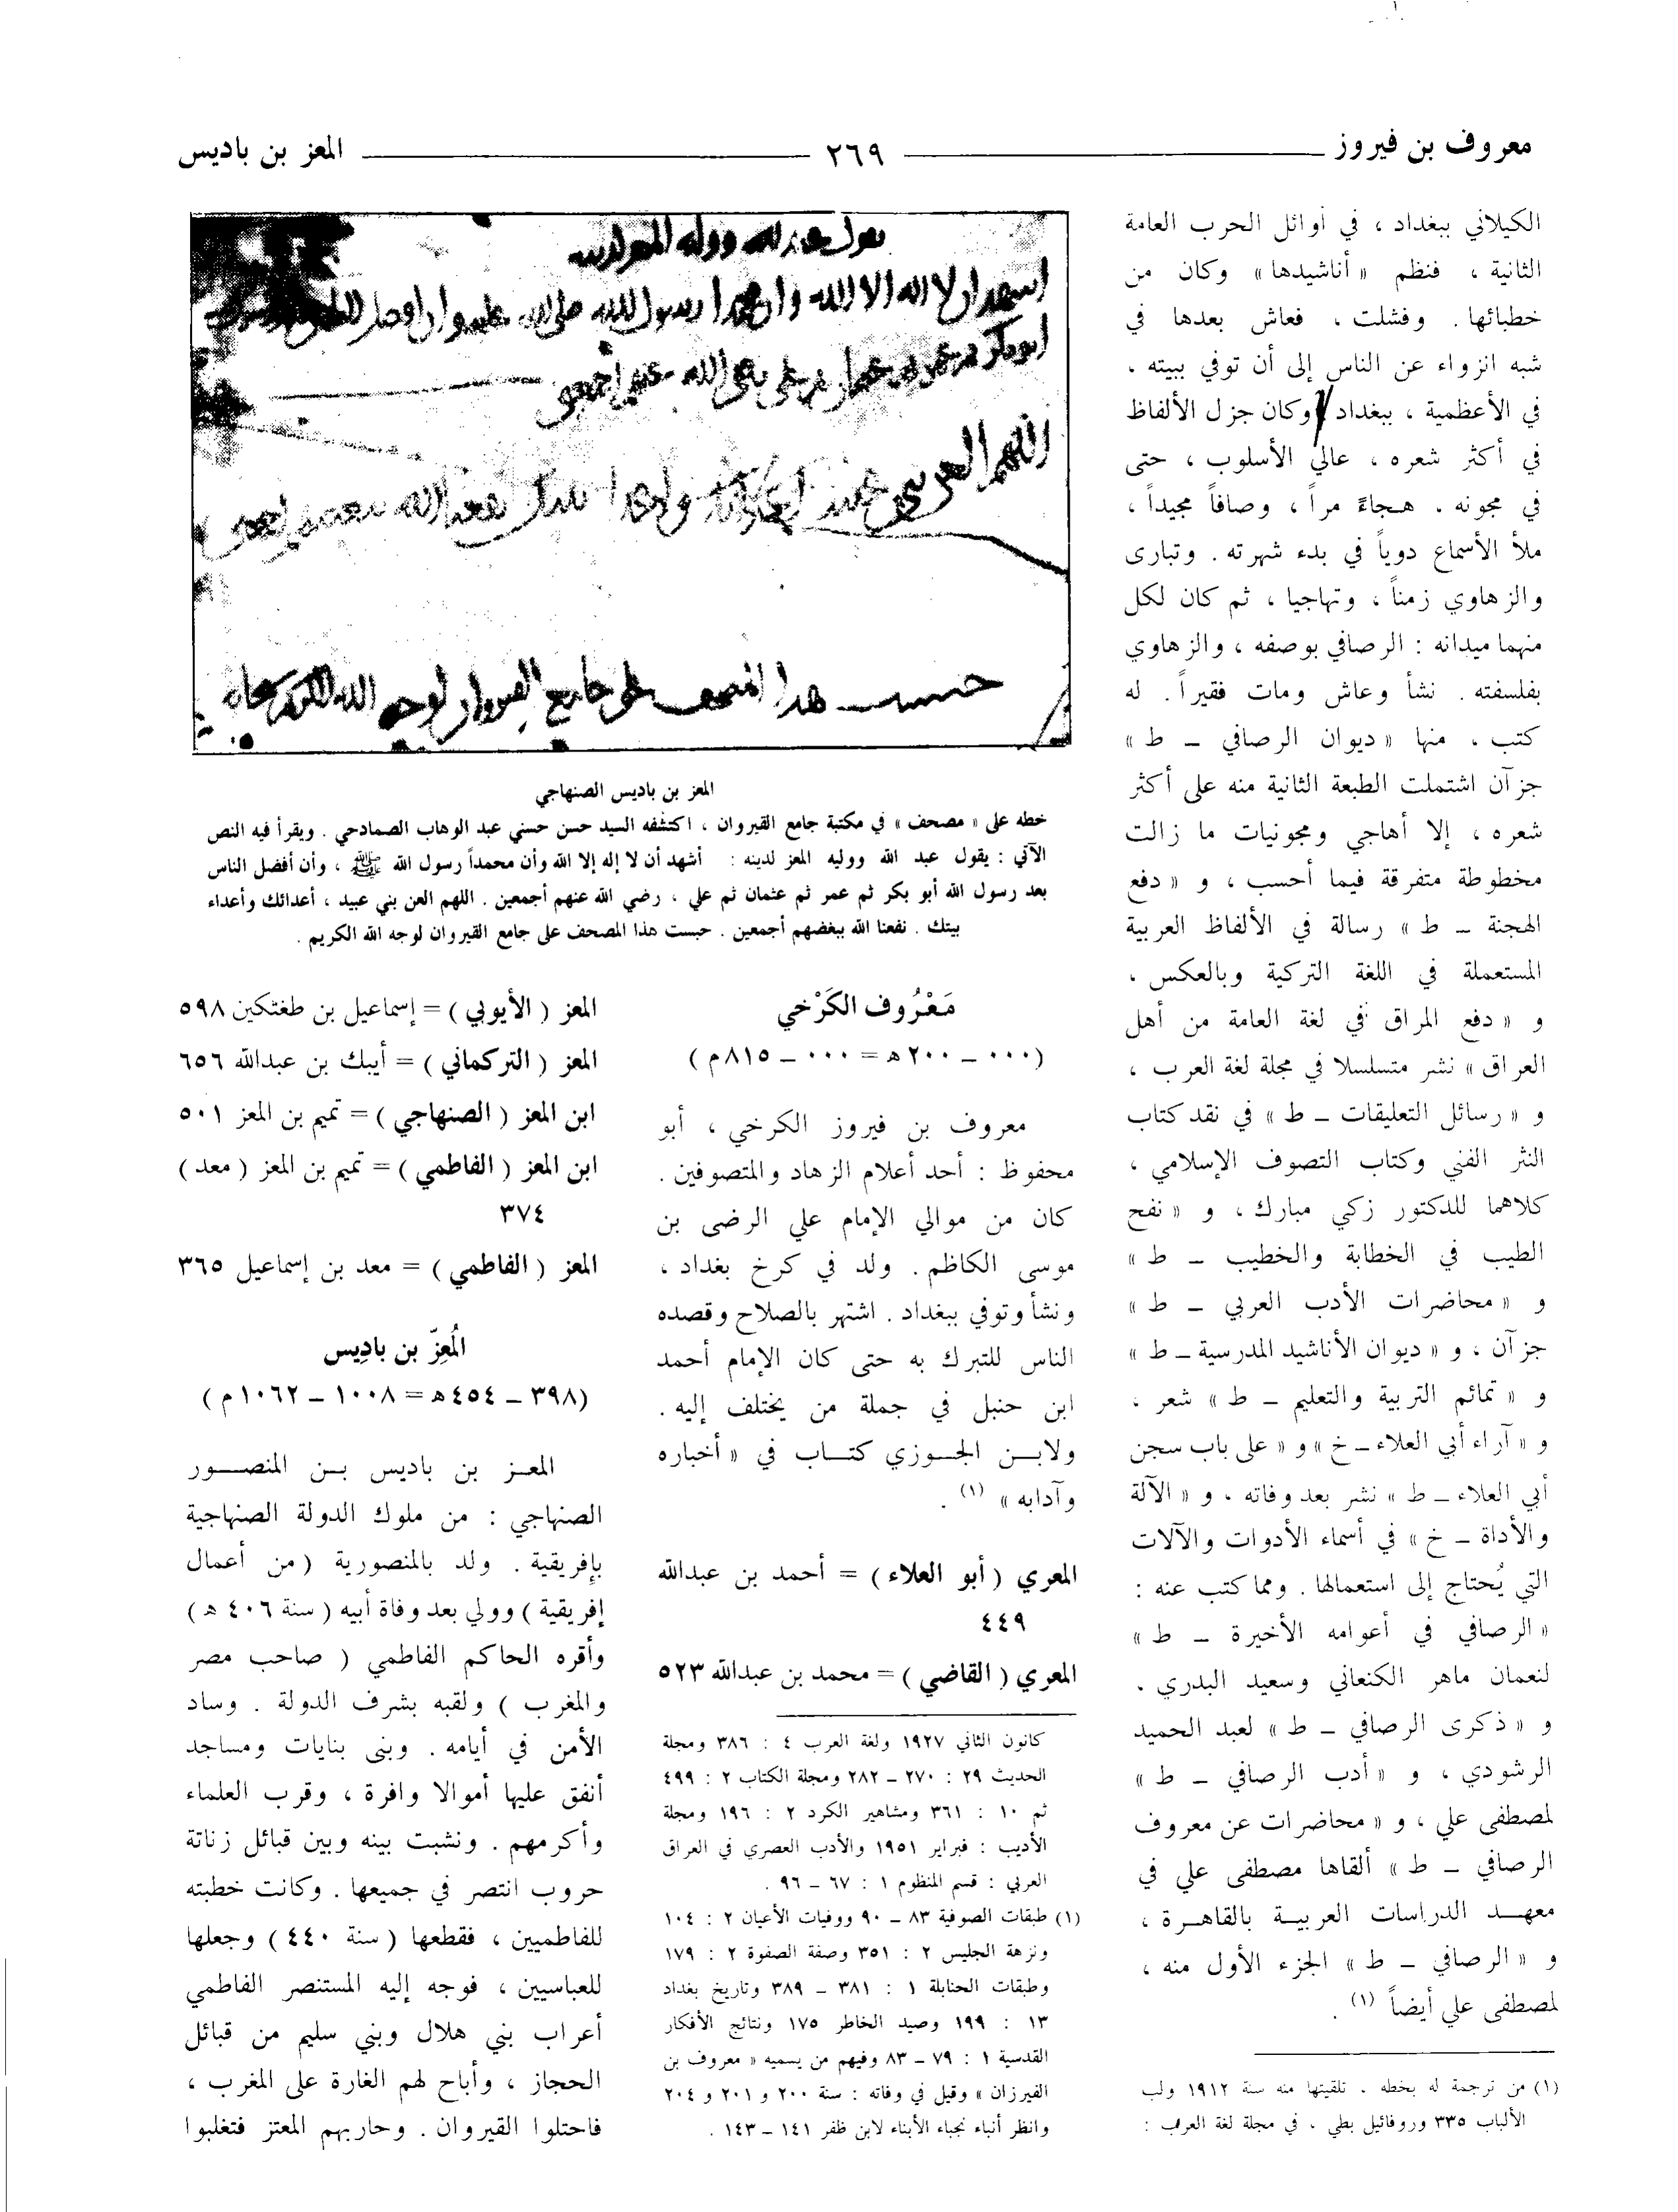 معروف بن فيروز
٢٦٩
المعز بن باديس
الكيلاني ببغداد ، في أوائل الحرب العامة
الثانية ، فنظم « أناشيدها » وكان من
خطبائها . وفشلت ، فعاش بعدها في
شبه انزواء عن الناس إلى أن توفي ببيته ،
في الأعظمية ، ببغداد . وكان جزل الألفاظ
في أكثر شعره ، عالي الأسلوب ، حتى
في مجونه . هجاءً مراً ، وصافاً مجيداً ،
ملأ الأسماع دوياً في بدء شهرته . وتبارى
والزهاوي زمناً ، وتهاجيا ، ثم كان لكل
منهما ميدانه : الرصافي بوصفه ، والزهاوي
بفلسفته . نشأ وعاش ومات فقيراً . له
كتب ، منها « ديوان الرصافي ــ ط »
جزآن اشتملت الطبعة الثانية منه على أكثر
شعره ، إلا أهاجي ومجونيات ما زالت
مخطوطة متفرقة فيما أحسب ، و « دفع
الهجنة ــ ط » رسالة في الألفاظ العربية
المستعملة في اللغة التركية وبالعكس ،
و « دفع المراق في لغة العامة من أهل
العراق » نشر متسلسلا في مجلة لغة العرب ،
و « رسائل التعليقات ــ ط » في نقد كتاب
النثر الفني وكتاب التصوف الإسلامي ،
كلاهما للدكتور زكي مبارك ، و « نفح
الطيب في الخطابة والخطيب ــ ط »
و « محاضرات الأدب العربي ــ ط »
جزآن ، و « ديوان الأناشيد المدرسية ــ ط »
و « تمائم التربية والتعليم ــ ط » شعر ،
و « آراء أبي العلاء ــ خ » و « على باب سجن
أبي العلاء ــ ط » نشر بعد وفاته ، و « الآلة
والأداة ــ خ » في أسماء الأدوات والآلات
التي يُحتاج إلى استعمالها . ومما كتب عنه :
« الرصافي في أعوامه الأخيرة ــ ط »
لنعمان ماهر الكنعاني وسعيد البدري .
و « ذكرى الرصافي ــ ط » لعبد الحميد
الرشودي ، و « أدب الرصافي ــ ط »
لمصطفى علي ، و « محاضرات عن معروف
الرصافي ــ ط » ألقاها مصطفى علي في
معهد الدراسات العربية بالقاهرة ،
و « الرصافي ــ ط » الجزء الأول منه ،
لمصطفى علي أيضاً (١) .
(١) من ترجمة له بخطه . تلقيتها منه سنة ١٩١٢ ولب
الألباب ٣٣٥ وروفائيل بطي ، في مجلة لغة العرب :
اللهم العن بني
حبست هذا المصحف على جامع القيروان لوجه الله الكريم
المعز بن باديس الصنهاجي
خطه على « مصحف » في مكتبة جامع القيروان ، اكتشفه السيد حسن حسني عبد الوهاب الصمادحي . ويقرأ فيه النص
الآتي : يقول عبد الله ووليه المعز لدينه : أشهد أن لا إله إلا الله وأن محمداً رسول الله ﷺ ، وأن أفضل الناس
بعد رسول الله أبو بكر ثم عمر ثم عثمان ثم علي ، رضي الله عنهم أجمعين . اللهم العن بني عبيد ، أعدائك وأعداء
بيتك . نفعنا الله ببغضهم أجمعين . حبست هذا المصحف على جامع القيروان لوجه الله الكريم .
مَعْرُوف الكَرْخي
(٠٠٠ ــ ٢٠٠ ه = ٠٠٠ ــ ٨١٥ م )
معروف بن فيروز الكرخي ، أبو
محفوظ : أحد أعلام الزهاد والمتصوفين .
كان من موالي الإمام علي الرضى بن
موسى الكاظم . ولد في كرخ بغداد ،
ونشأ وتوفي ببغداد . اشتهر بالصلاح وقصده
الناس للتبرك به حتى كان الإمام أحمد
ابن حنبل في جملة من يختلف إليه .
ولابن الجوزي كتاب في « أخباره
وآدابه » (١) .
المعري ( أبو العلاء ) = أحمد بن عبدالله
٤٤٩
المعري ( القاضي ) = محمد بن عبدالله ٥٢٣
كانون الثاني ١٩٢٧ ولغة العرب ٤ : ٣٨٦ ومجلة
الحديث ٢٩ : ٢٧٠ ــ ٢٨٢ ومجلة الكتاب ٢ : ٤٩٩
ثم ١٠ : ٣٦١ ومشاهير الكرد ٢ : ١٩٦ ومجلة
الأديب : فبراير ١٩٥١ والأدب العصري في العراق
العربي : قسم المنظوم ١ : ٦٧ ــ ٩٦ .
(١) طبقات الصوفية ٨٣ ــ ٩٠ ووفيات الأعيان ٢ : ١٠٤
ونزهة الجليس ٢ : ٣٥١ وصفة الصفوة ٢ : ١٧٩
وطبقات الحنابلة ١ : ٣٨١ ــ ٣٨٩ وتاريخ بغداد
١٣ : ١٩٩ وصيد الخاطر ١٧٥ ونتائج الأفكار
القدسية ١ : ٧٩ ــ ٨٣ وفيهم من يسميه « معروف بن
الفيرزان » وقيل في وفاته : سنة ٢٠٠ و ٢٠١ و ٢٠٤
وانظر أنباء نجباء الأبناء لابن ظفر ١٤١ ــ ١٤٣ .
المعز ( الأيوبي ) = إسماعيل بن طغتكين ٥٩٨
المعز ( التركماني ) = أيبك بن عبدالله ٦٥٦
ابن المعز ( الصنهاجي ) = تميم بن المعز ٥٠١
ابن المعز ( الفاطمي ) = تميم بن المعز ( معد )
٣٧٤
المعز ( الفاطمي ) = معد بن إسماعيل ٣٦٥
المُعِزّ بن بادِيس
(٣٩٨ ــ ٤٥٤ ه = ١٠٠٨ ــ ١٠٦٢ م )
المعز بن باديس بن المنصور
الصنهاجي : من ملوك الدولة الصنهاجية
بإفريقية . ولد بالمنصورية ( من أعمال
إفريقية ) وولي بعد وفاة أبيه ( سنة ٤٠٦ ه )
وأقره الحاكم الفاطمي ( صاحب مصر
والمغرب ) ولقبه بشرف الدولة . وساد
الأمن في أيامه . وبنى بنايات ومساجد
أنفق عليها أموالا وافرة ، وقرب العلماء
وأكرمهم . ونشبت بينه وبين قبائل زناتة
حروب انتصر في جميعها . وكانت خطبته
للفاطميين ، فقطعها ( سنة ٤٤٠ ) وجعلها
للعباسيين ، فوجه إليه المستنصر الفاطمي
أعراب بني هلال وبني سليم من قبائل
الحجاز ، وأباح لهم الغارة على المغرب ،
فاحتلوا القيروان . وحاربهم المعتز فتغلبوا